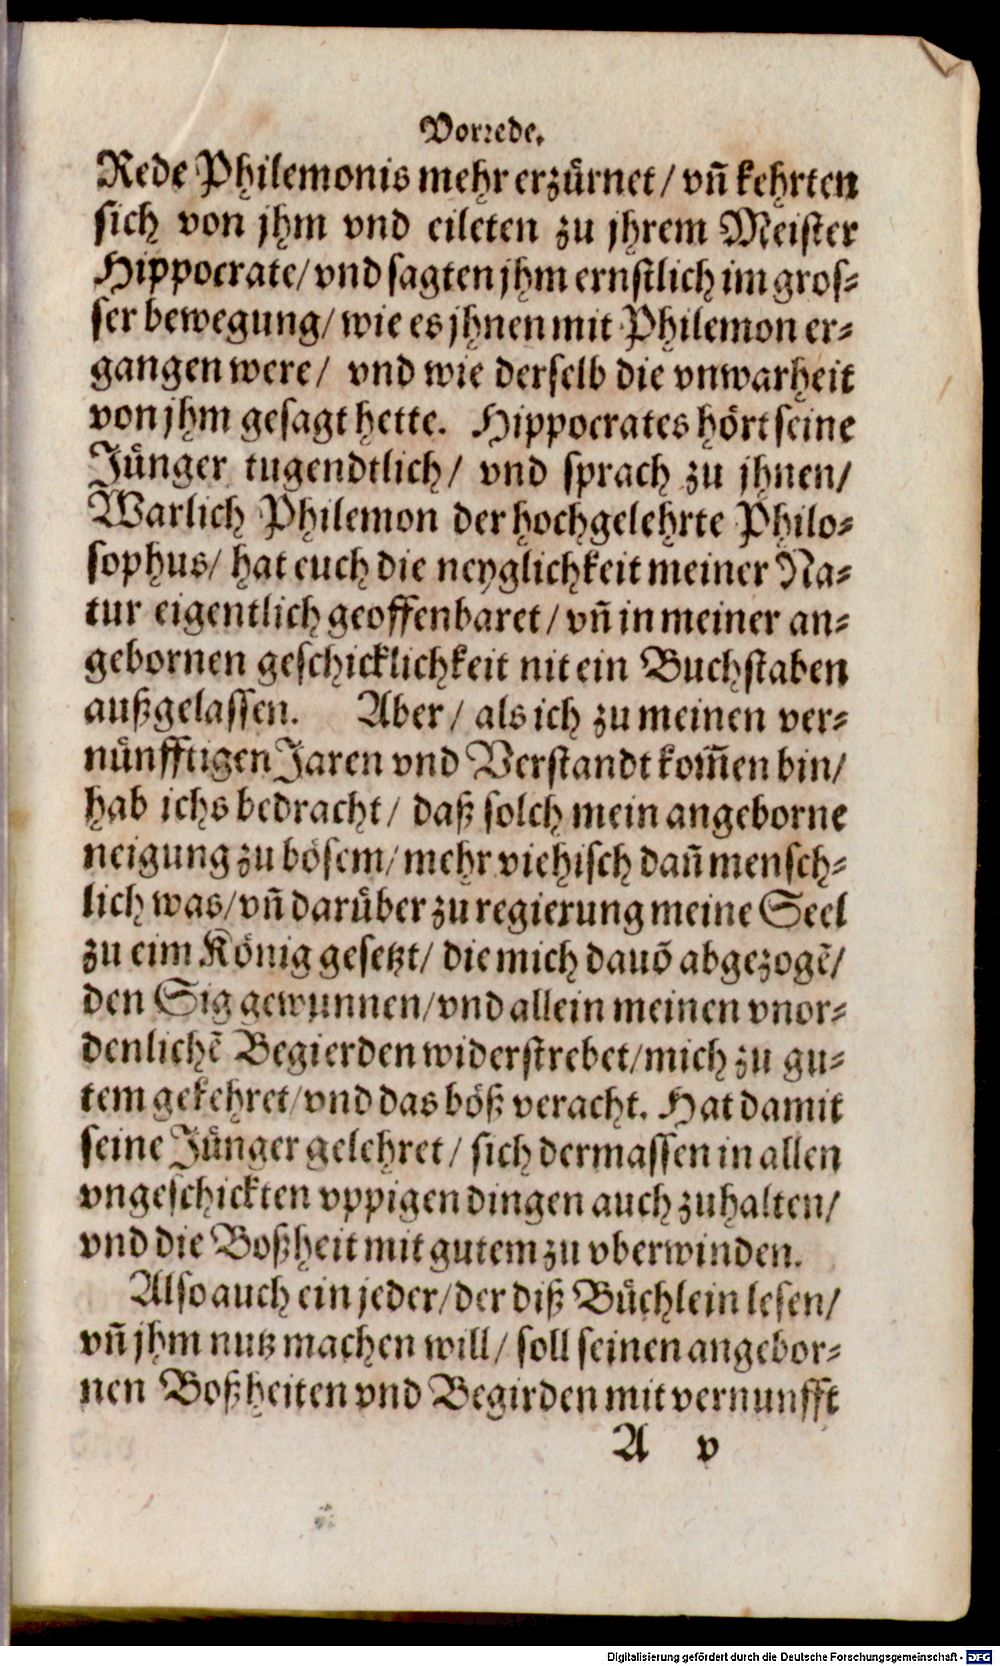 Vorrede.
Rede Philemonis mehr erzürnet / vñ kehrten
sich von jhm vnd eileten zu jhrem Meister
Hippocrate / vnd sagten jhm ernstlich im gros-
ser bewegung / wie es jhnen mit Philemon er-
gangen were / vnd wie derselb die vnwarheit
von jhm gesagt hette. Hippocrates hört seine
Jünger tugendtlich / vnd sprach zu jhnen /
Warlich Philemon der hochgelehrte Philo-
sophus / hat euch die neyglichkeit meiner Na-
tur eigentlich geoffenbaret / vñ in meiner an-
gebornen geschicklichkeit nit ein Buchstaben
außgelassen. Aber / als ich zu meinen ver-
nünfftigen Jaren vnd Verstandt kom̃en bin /
hab ichs bedracht / daß solch mein angeborne
neigung zu bösem / mehr viehisch dañ mensch-
lich was / vñ darüber zu regierung meine Seel
zu eim König gesetzt / die mich dauõ abgezogẽ /
den Sig gewunnen / vnd allein meinen vnor-
denlichẽ Begierden widerstrebet / mich zu gu-
tem gekehret / vnd das böß veracht. Hat damit
seine Jünger gelehret / sich dermassen in allen
vngeschickten vppigen dingen auch zuhalten /
vnd die Boßheit mit gutem zu vberwinden.
Also auch ein jeder / der diß Büchlein lesen /
vñ jhm nutz machen will / soll seinen angebor-
nen Boßheiten vnd Begirden mit vernunfft
A v
Digitalisierung gefördert durch die Deutsche Forschungsgemeinschaft - DFG